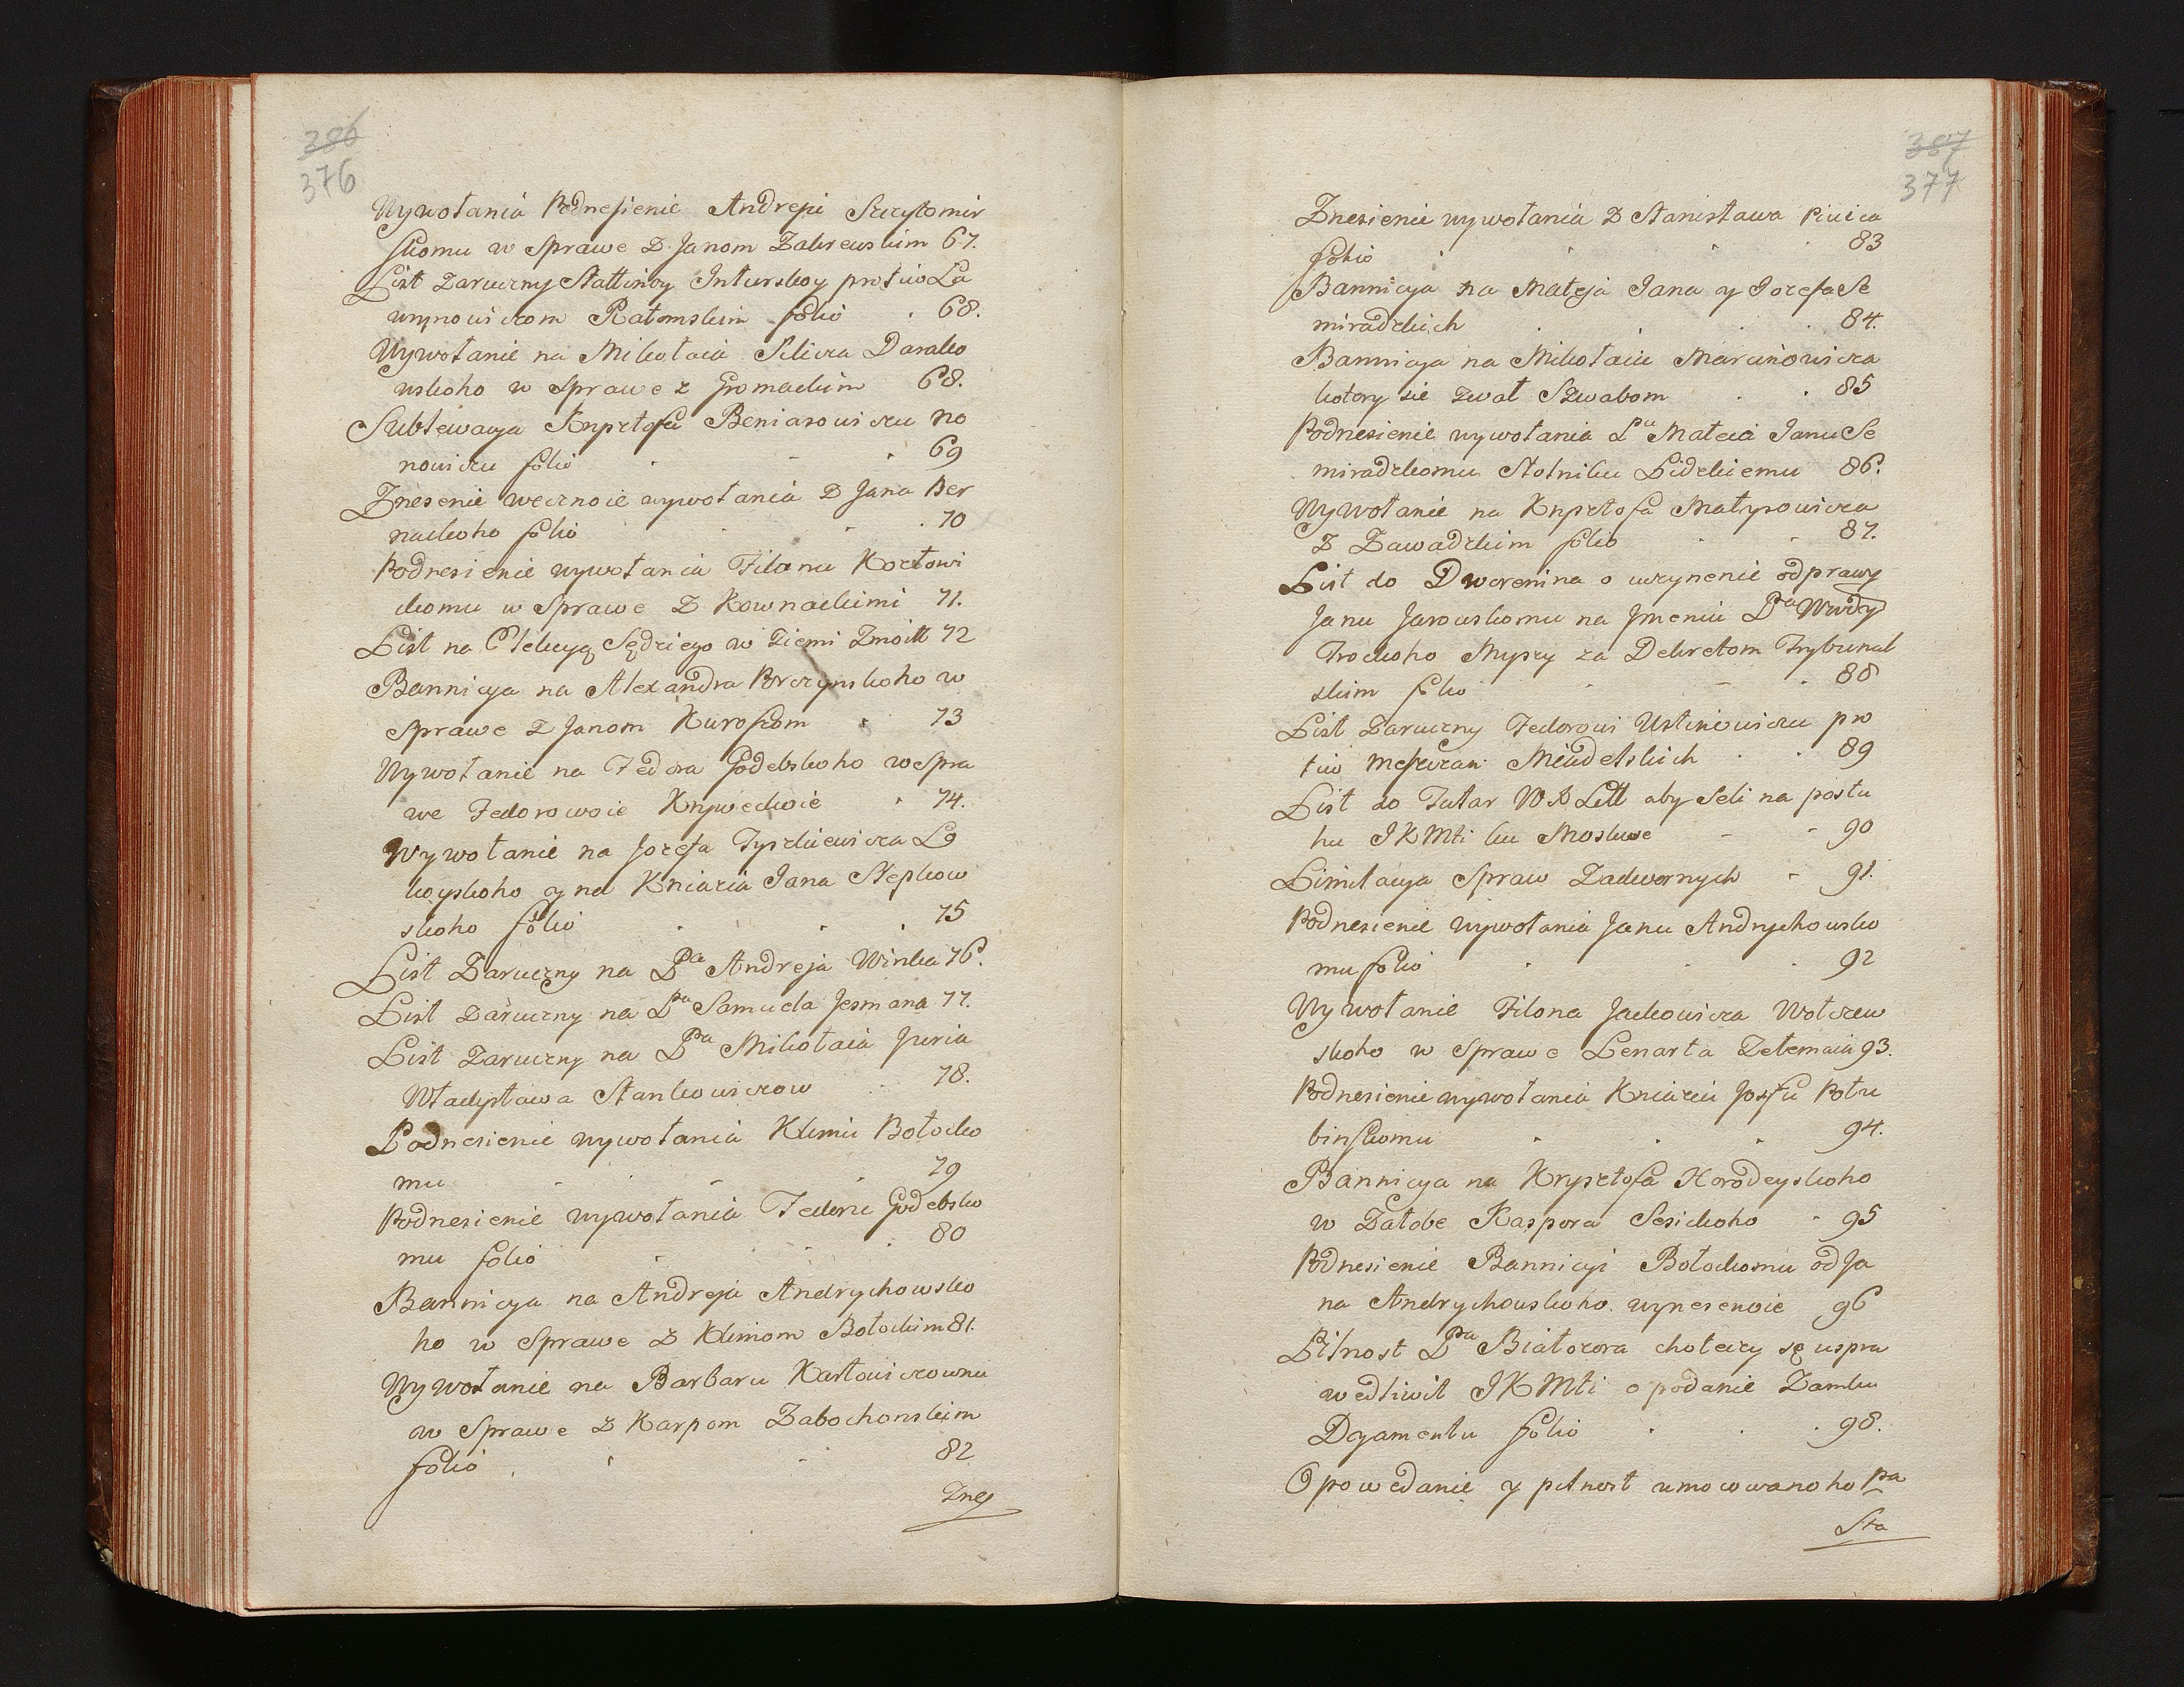 386
376
Wywołania Podnesienie Andreju Szczytomir
skomu w Sprawe Z Janom Zakrewskim 67.
List Zaruczny Stattinoy Inturskoy protiw La
wrynowiczom Ratomskim folio 68.
Wywołanie na Mikołaia Silicza Darako
wskoho w Sprawe z Gromackim 68.
Sublewacya Krysztofu Beniaszowiczu No
nowiczu folio 69
Znesenie wecznoie wywołania Z Jana Ber
nackoho folio 70
Podnesienie wywołania Filonu Kozłowi
ckomu w Sprawe Z Kownackimi 71.
List na Elekcyą Sędziego w Ziemi Zmoitt 72
Bannicya na Alexandra Porczynskoho w
Sprawe Z Janom Kuroszom 73
Wywołanie na Fedora Godebskoho w Spra
we Fedorowoie Kryweckoie 74.
Wywołanie na Jozefa Tyszkiewicza Lo
hoyskoho y na Kniazia Jana Stepkow
skoho folio 75
List Zaruczny na Pa Andreja Winka 76.
List Zaruczny na Pa Samuela Jesmana 77.
List Zaruczny na Pa Mikołaia Juria
Władysława Stankowiczow 78.
Podnesienie wywołania Klimu Bołocko
mu 79
Podnesienie wywołania Fedoru Godebsko
mu folio 80
Bannicya na Andreja Andrychowsko
ho w Sprawe Z Klimom Bołockim 81.
Wywołanie na Barbaru Karłowiczownu
w Sprawe Z Karpom Zabochonskim
folio 82
Znes
387
377
Znesienie wywołania Z Stanisława Piwica
folio 83
Bannicya na Mateja Jana y Jozefa Se
miradzkich 84.
Bannicya na Mikołaia Marcinowicza
kotory sie zwał Szwabom 85
Podnesienie wywołania Pu Mateia Janu Se
miradzkomu Stolniku Lidzkiemu 86.
Wywołanie na Krysztofa Matysowicza
Z Zawadzkim folio 87.
List do Dworenina o uczynenie odprawy
Janu Jarowskomu na Jmeniu Pa Wwdy
Trockoho Myszy za Dekretom Trybunal
skim folio 88
List Zaruczny Fedorowi Ustinowiczu pro
tiw Meszczan Miadelskich 89
List do Tatar WXLitt aby Seli na postu
hu JKMti ku Moskwe 90
Limitacya Spraw Zadwornych 91.
Podnesienie wywołania Janu Andrychowsko
mu folio 92
Wywołanie Filona Jackowicza Wołczew
skoho w Sprawe Lenarta Zelemaia 93.
Podnesienie wywołania Kniaziu Josfu Połu
binskomu 94.
Bannicya na Krysztofa Horodeyskoho
w Załobe Kaspora Sesickoho 95
Podnesienie Bannicyi Bołockomu od Ja
na Andrychowskoho wynesenoie 96
Pilnost Pa Białozora choteczy sę uspra
wedliwit JKMti o podanie Zamku
Dyamentu folio 98.
Opowedanie y pilnost umocowanoho Pa
Sta